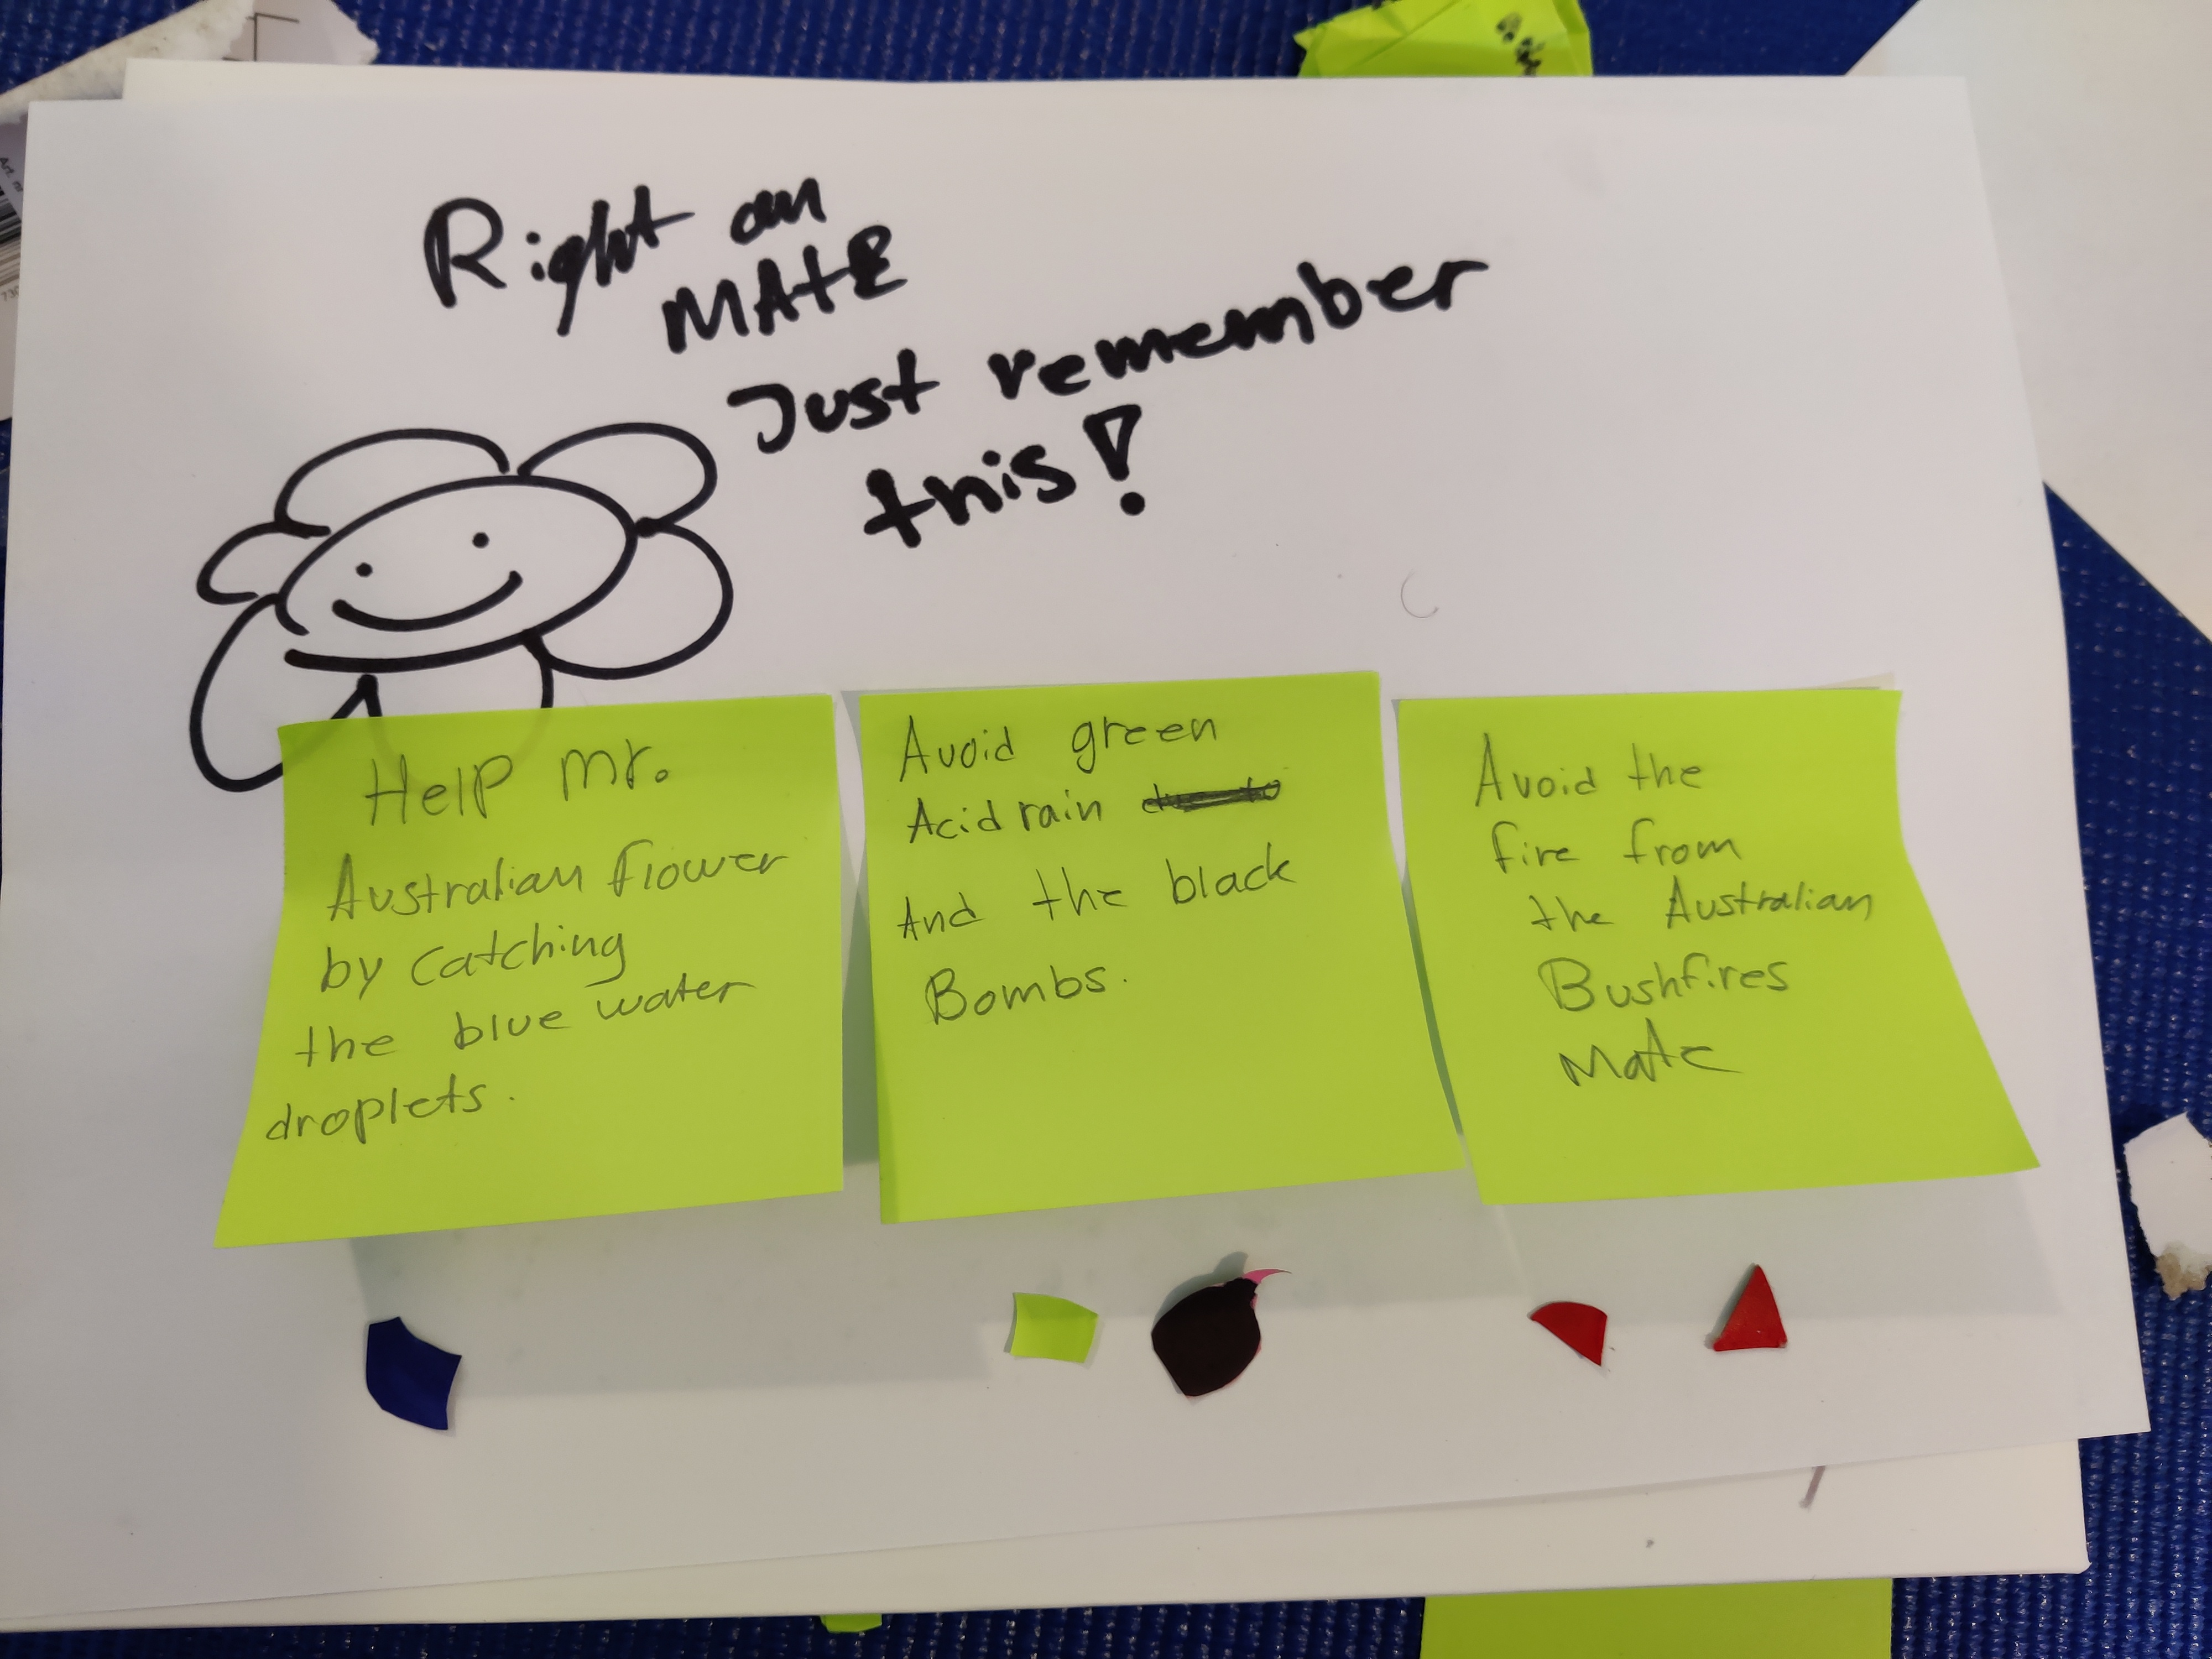 Right on
MAtE
Just remember
this!
Help mr.
Australian flower
by catching
the blue water
droplets.
Avoid green
Acid rain
And the black
Bombs.
Avoid the
fire from
the Australian
Bushfires
Mate